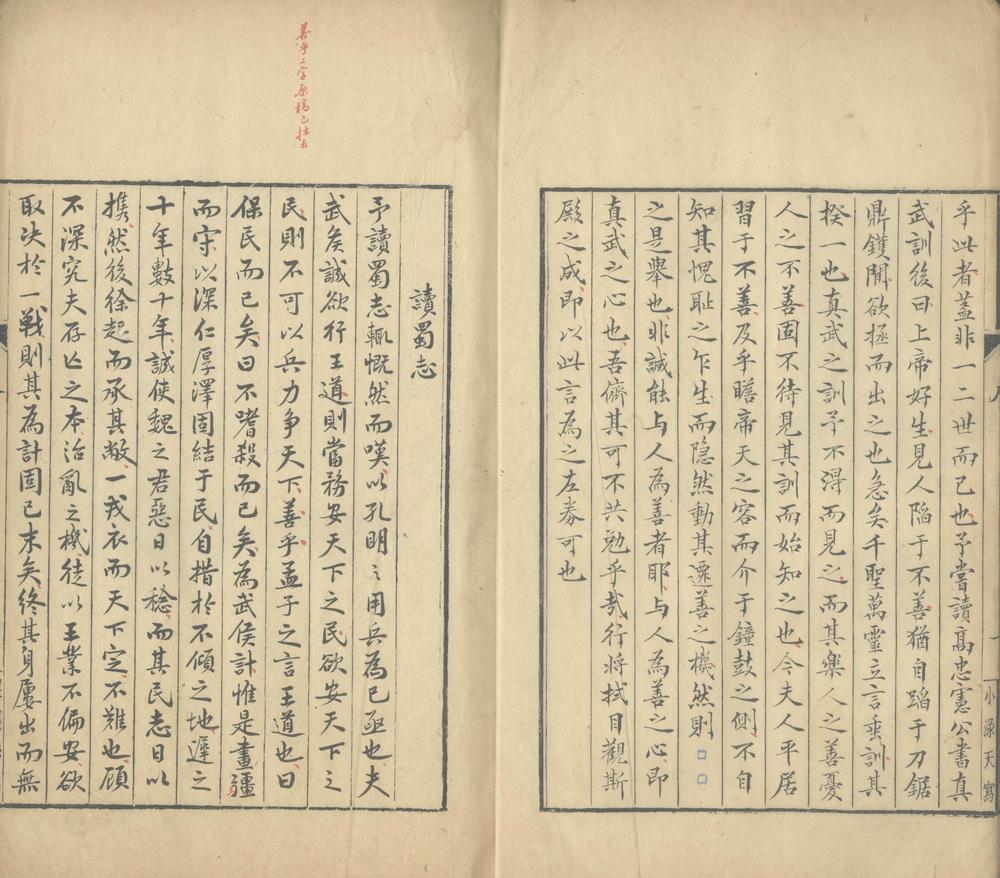 乎此者蓋非一二世而已也予嘗讀高忠憲公書真
武訓後曰上帝好生見人陷于不善猶自蹈于刀鋸
鼎鑊閒欲拯而出之也急矣千聖萬靈立言垂訓其
揆一也真武之訓予不得而見之而其樂人之善憂
人之不善固不待見其訓而始知之也今夫人平居
習于不善及乎瞻帝天之容而介于鐘鼓之側不自
知其愧恥之乍生而隐然動其遷善之機然則□□
之是舉也非誠能与人為善者耶与人為善之心即
真武之心也吾儕其可不共勉乎哉行將拭目觀斯
殿之成即以此言為之左券可也
小淥天寫
善乎二字原稿已抹去
讀蜀志
予讀蜀志輒慨然而嘆以孔明之用兵為已亟也夫
武矦誠欲行王道則當務安天下之民欲安天下之
民則不可以兵力争天下善乎孟子之言王道也曰
保民而已矣曰不嗜殺而已矣為武侯計惟是畫疆
而守以深仁厚澤固結于民自措於不傾之地遲之
十年數十年誠使魏之君惡日以稔而其民志日以
攜然後徐起而承其敝一戎衣而天下定不難也顧
不深究夫存亡之本治亂之機徒以王業不偏安欲
取决於一戰則其為計固已末矣終其身屢出而無